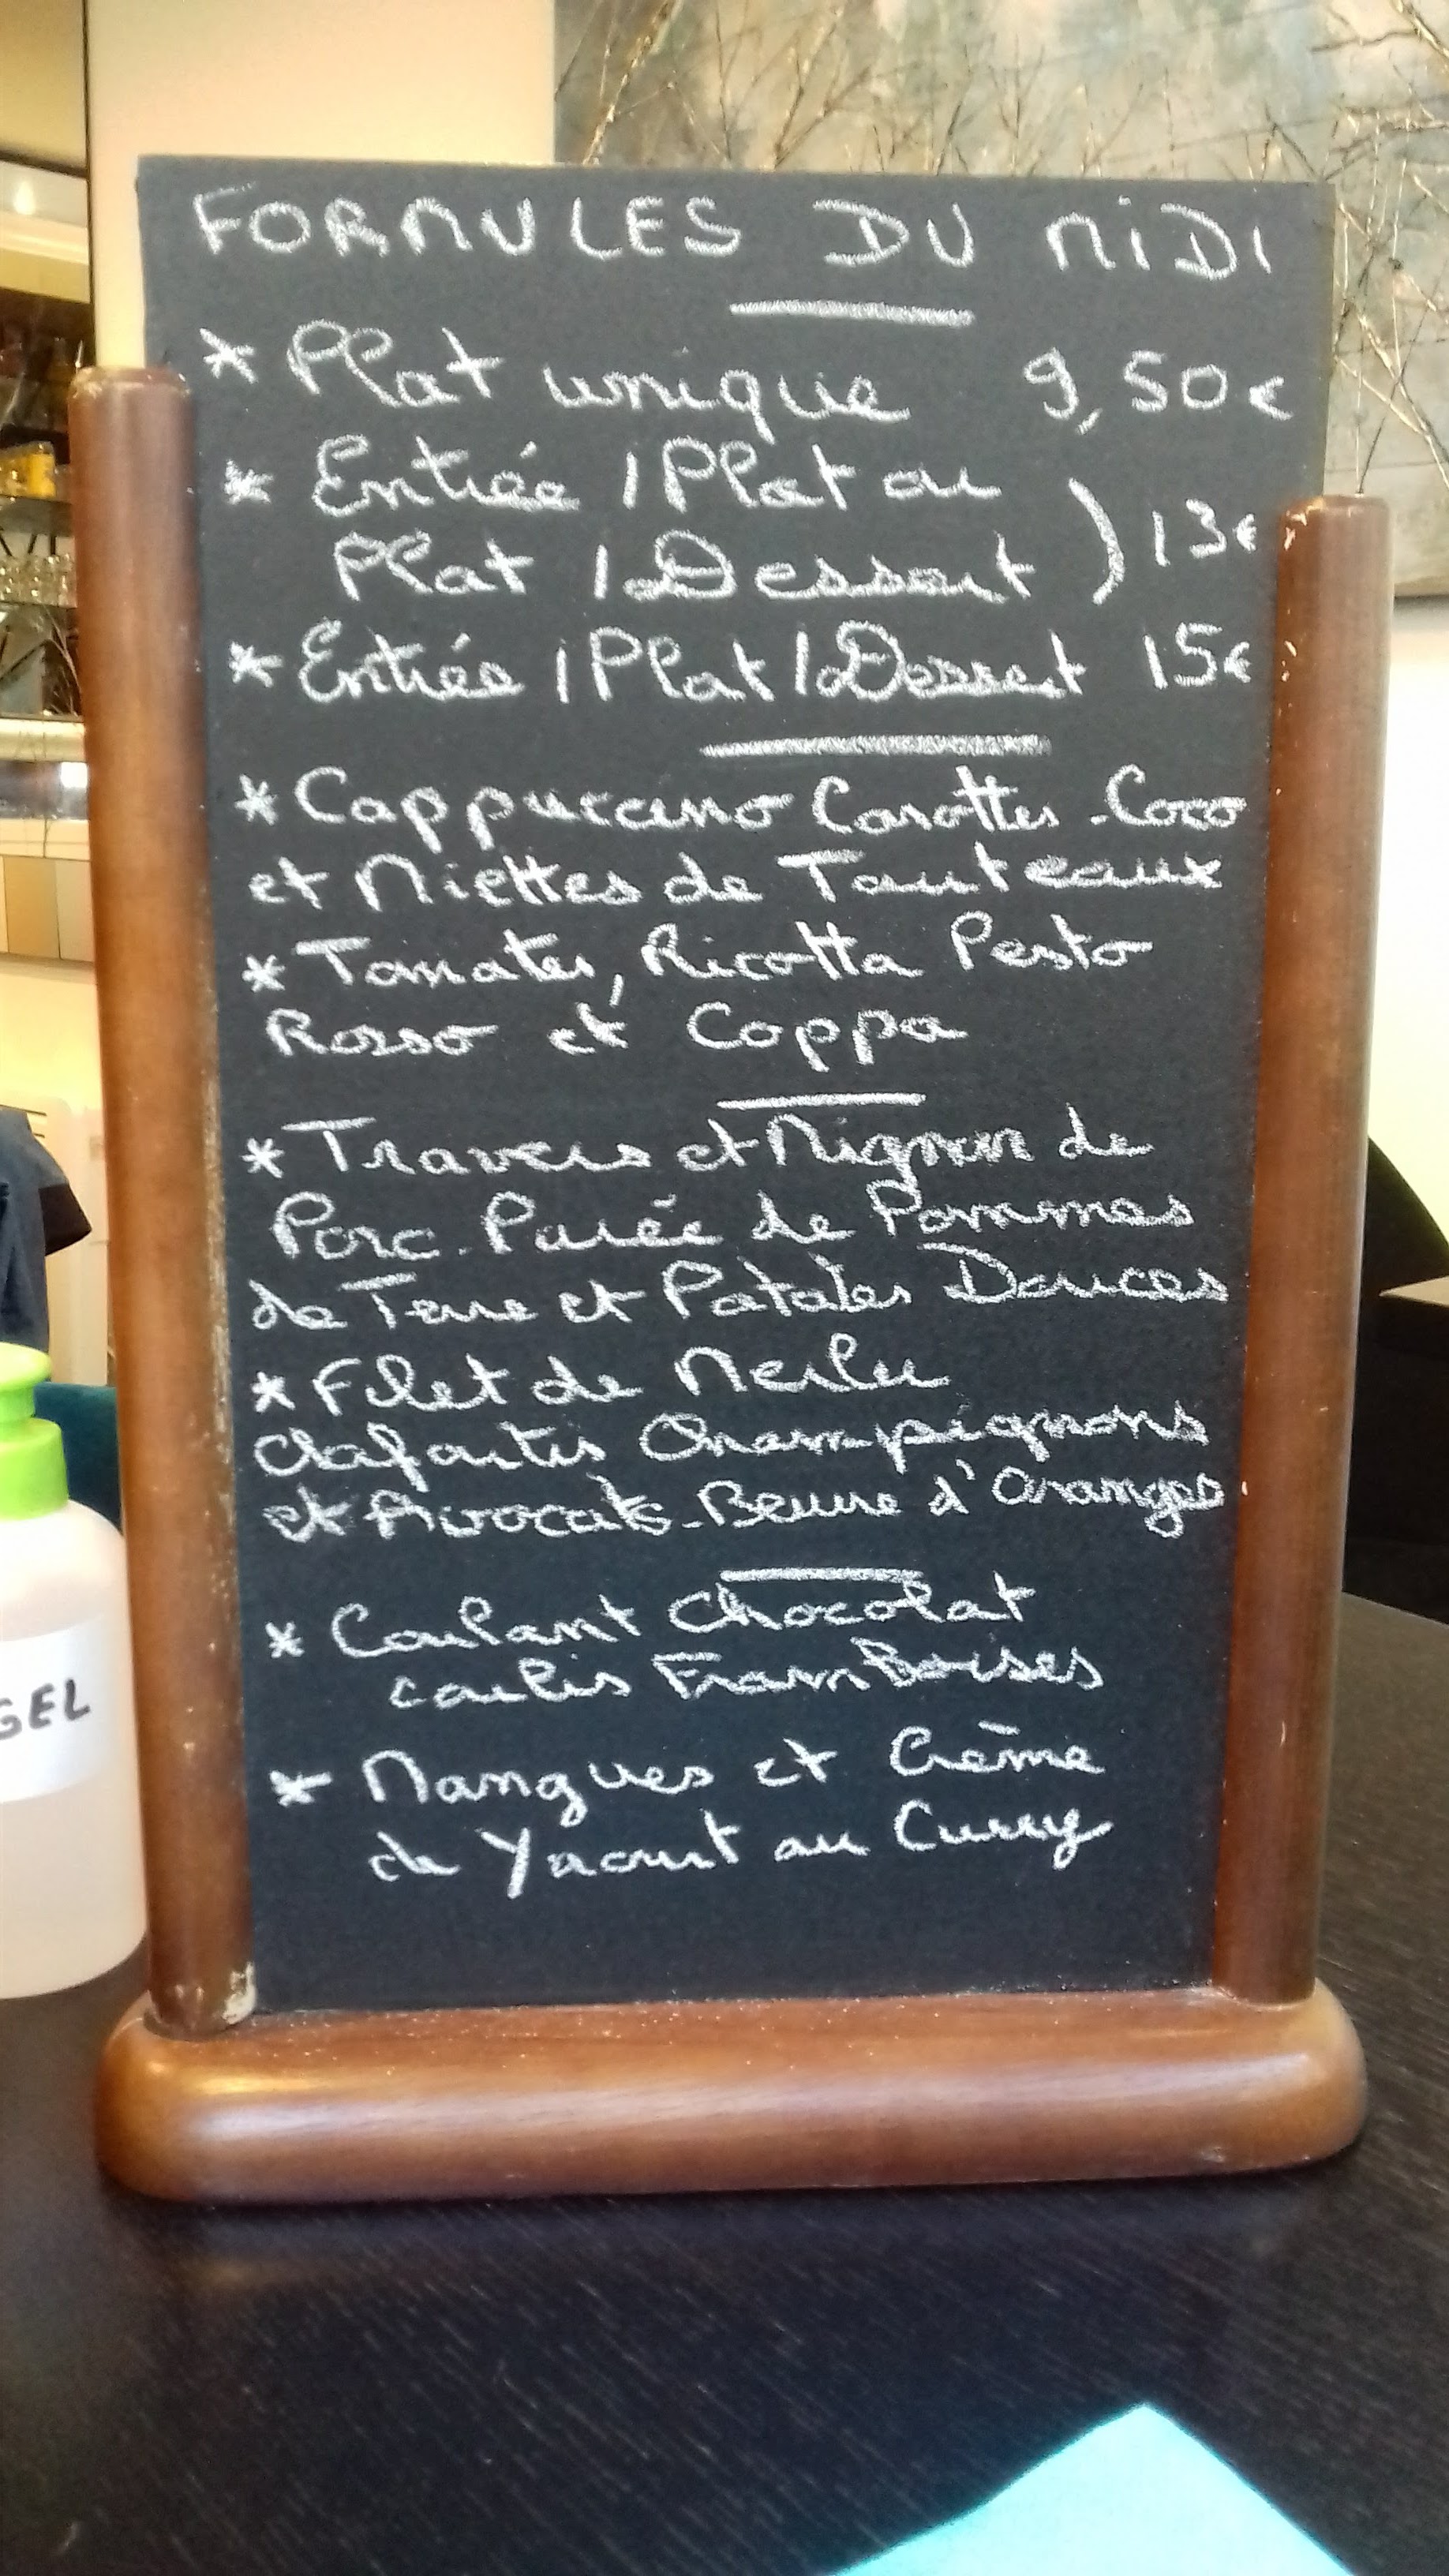 FORMULES DU MiDi
* Plat unique 9,50€
* Entrée / Plat ou
Plat / Dessert ) 13€
* Entrée / Plat / Dessert 15€
* Cappuccino Carottes - Coco
et Miettes de Tourteaux
* Tomates, Ricotta Pesto
Rosso et Coppa
* Travers et Mignon de
Porc - Purée de Pommes
de Terre et Patates Douces
* Filet de Merlu
Clafoutis Champignons
et Avocats - Beurre d'Oranges
* Coulant Chocolat
coulis Framboises
* Mangues et Crème
de Yaourt au Curry
GEL